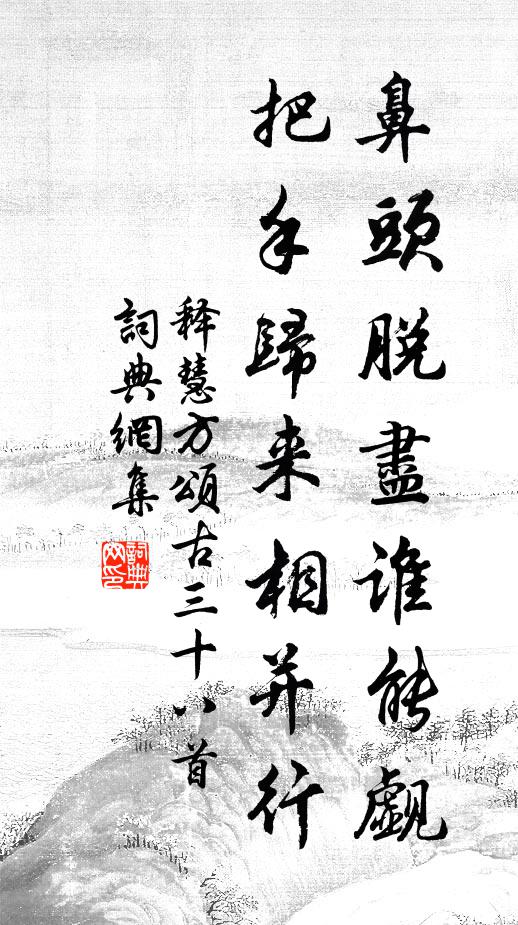 鼻頭脱盡誰能覷
把手歸来相并行
释慧方頌古三十八首
詞典網集
詞典网印